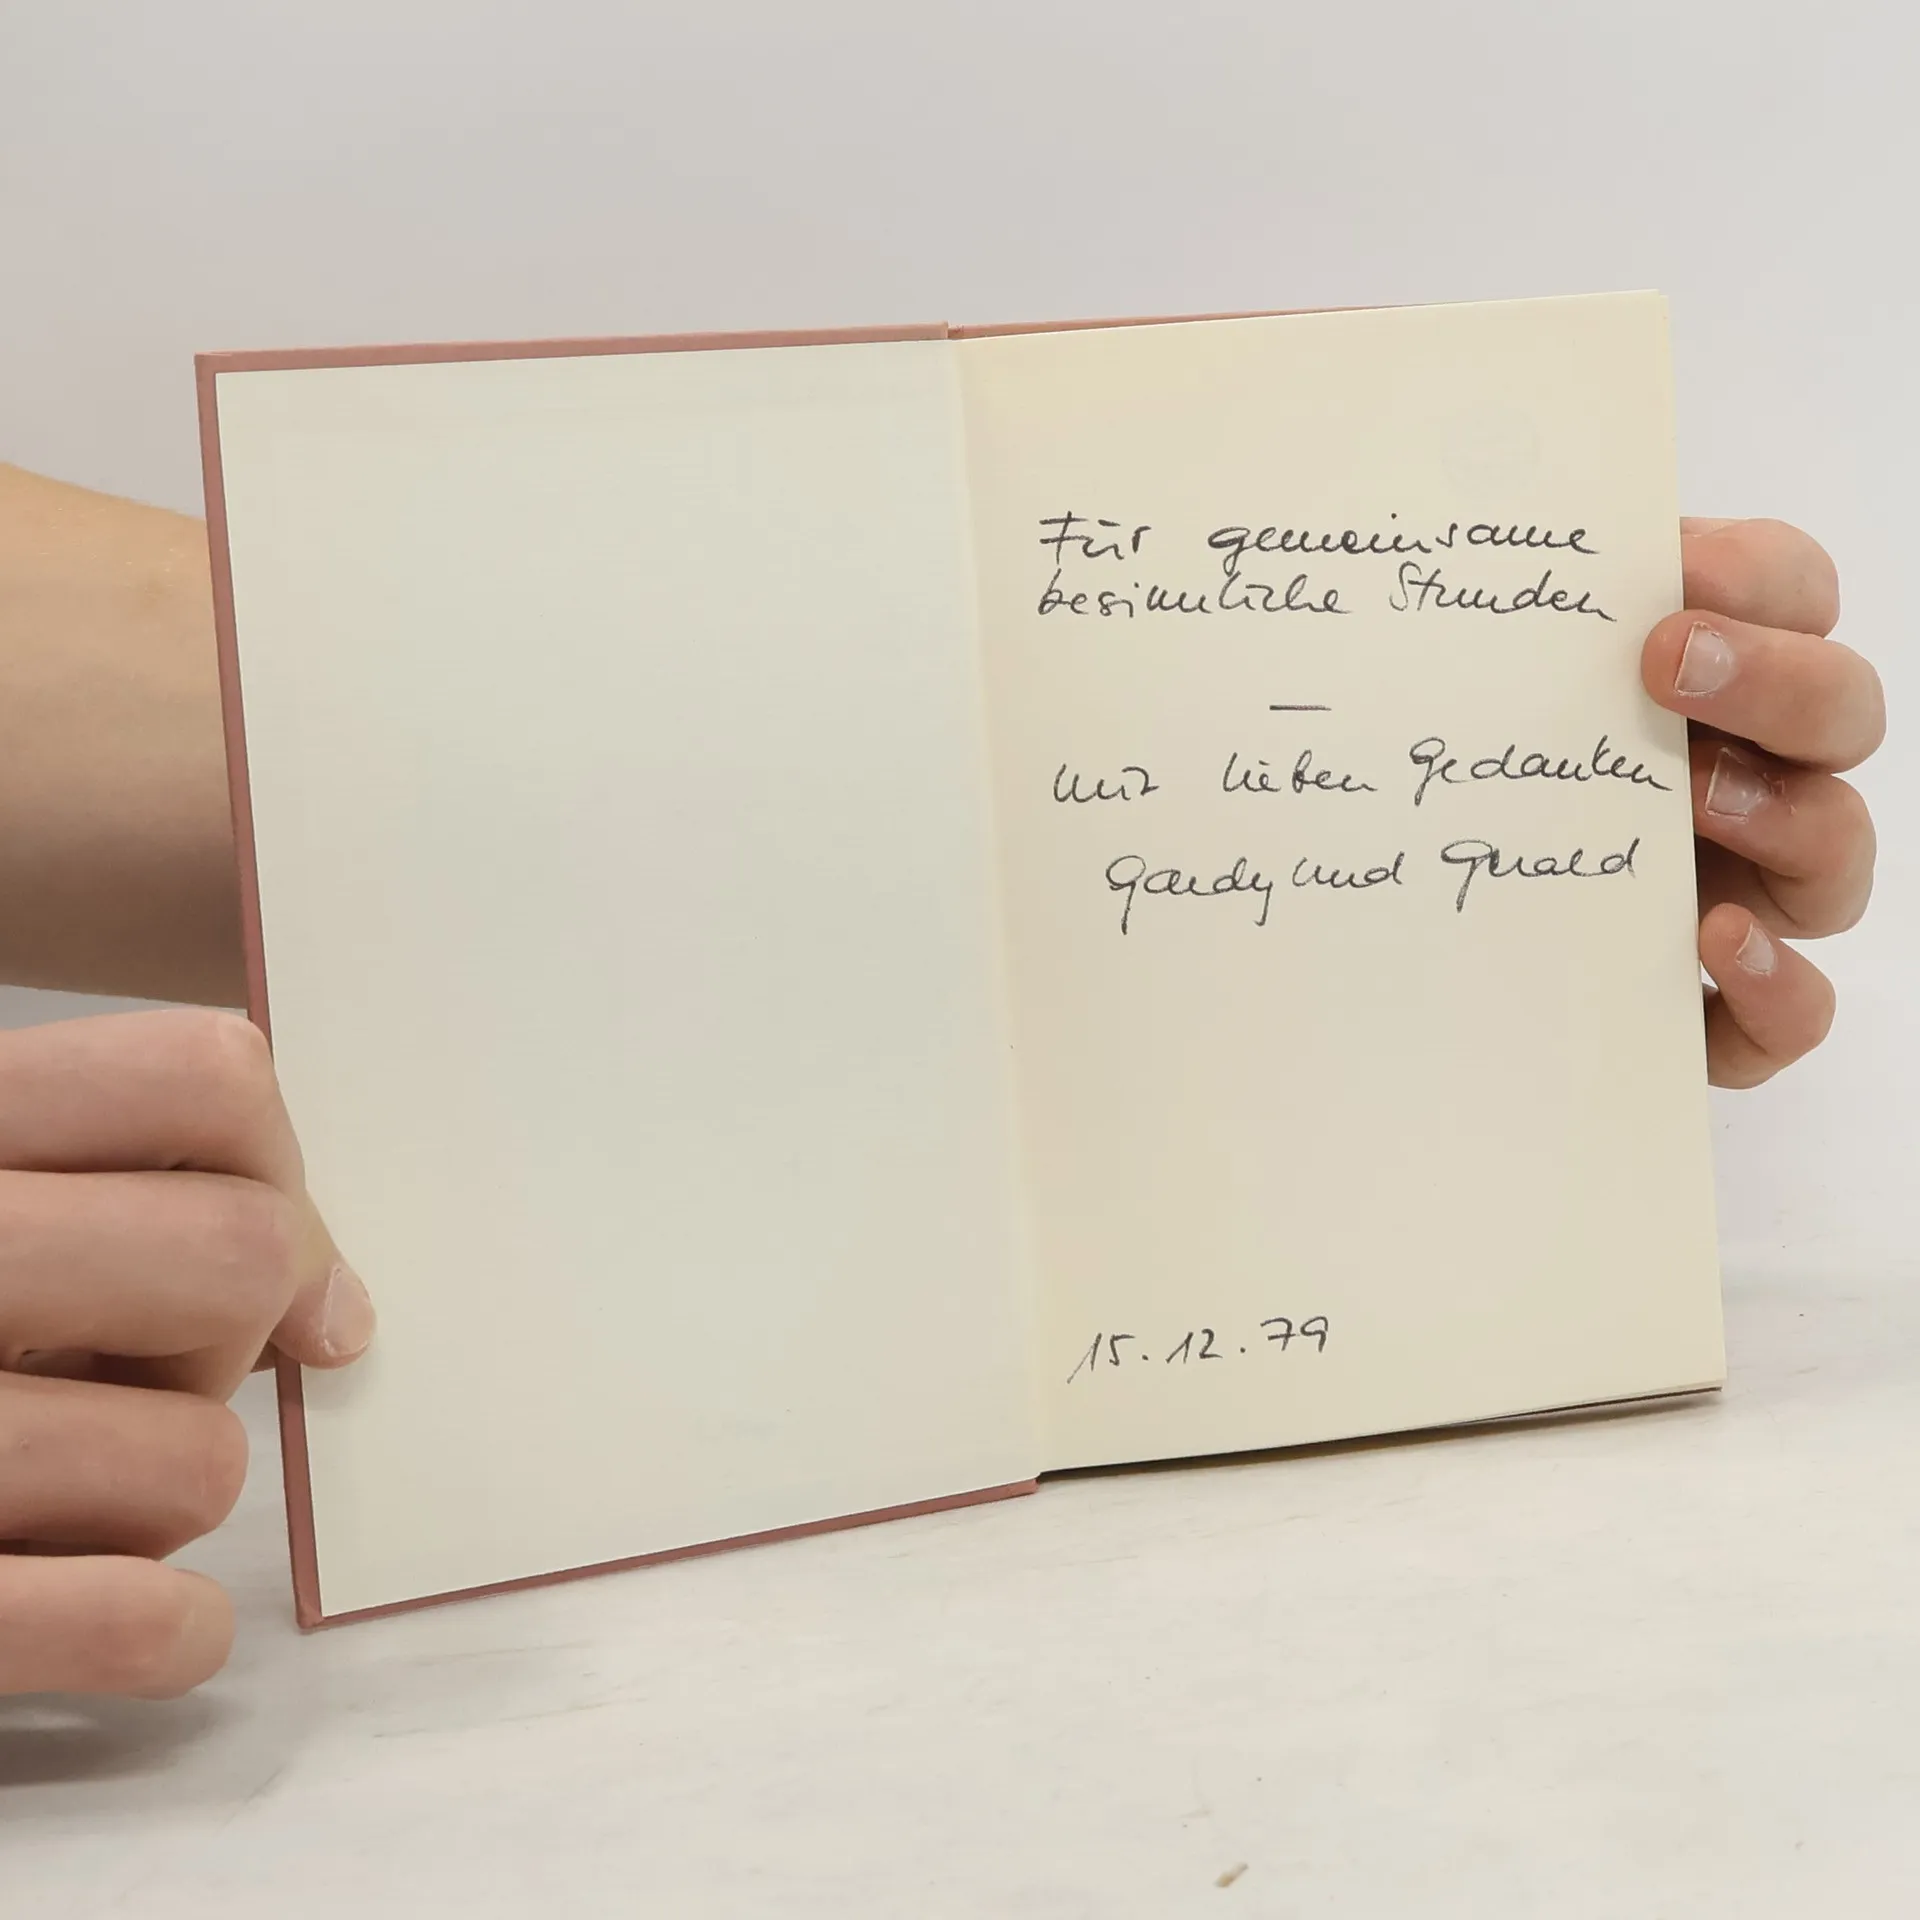 Für gemeinsame
besinnliche Stunden
—
mit lieben Gedanken
und Gerald
15.12.79